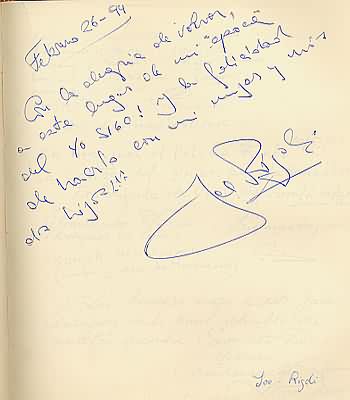 Febrero 26-94
Con la alegria de volver,
a este lugar de mi "época
del Yo sigo! y la felicidad
de hacerlo con mi mujer y mis
dos hijos!!!